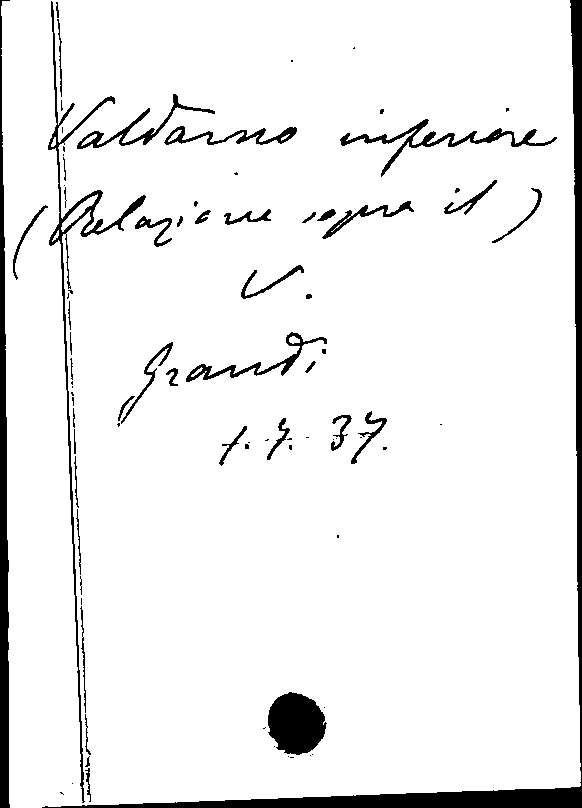 Valdarno inferiore
(Relazione sopra il)
V.
Grandi
1.7.37.